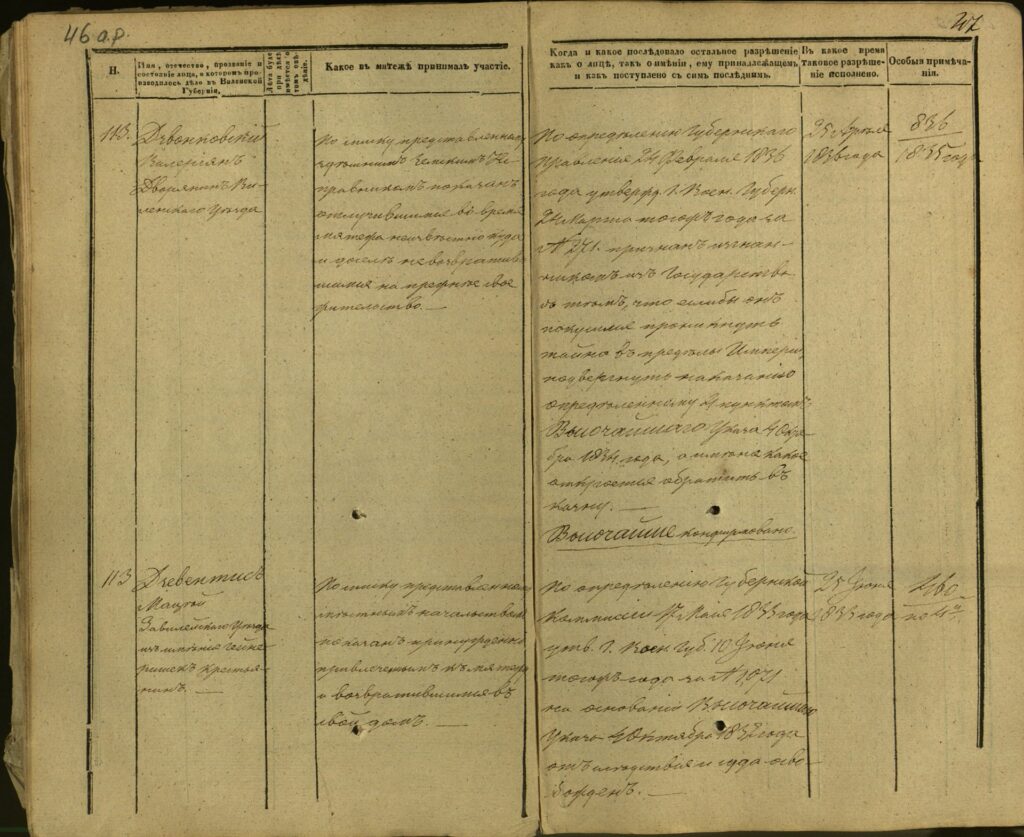 46 а.р.
Н.
Имя, отчество, прозвание и
состояние лица, о котором про-
изводилось дело в Виленской
Губернии,
Лѣта буде
при дѣлѣ
имѣется о
томъ свѣ-
дѣніе.
Какое въ мятежѣ принималъ участіе.
113.
Валеріянъ
Дворянинъ Ви-
ленскаго Уѣзда
По списку представленному
правникомъ показанъ
отлучившимся во время
мятежа неизвѣстно куда
и доселѣ не возвратив-
шимся на прежнее свое
жительство. —
113
Завилейскаго Уѣзда
изъ имѣнія
ришекъ крестья-
нинъ. —
По списку представленному
мѣстнымъ начальствомъ
показанъ принужденно
привлеченнымъ къ мятежу
и возвратившимся въ
свой домъ. —
Когда и какое послѣдовало остальное разрѣшеніе
какъ о лицѣ, такъ о имѣніи, ему принадлежащемъ
и какъ поступлено съ симъ послѣднимъ.
Въ какое время
таковое разрѣше-
ніе исполнено.
Особыя примѣча-
нія.
По опредѣленію Губернскаго
Правленія 24 Февраля 1836
года утвержд. Г. Воен. Губерн.
24 Марта тогожъ года за
N 271. признанъ изгнан-
никомъ изъ Государства
съ тѣмъ, что еслибы онъ
покусился проникнуть
тайно въ предѣлы Имперіи,
подвергнуть наказанію
опредѣленному
Высочайшаго Указа 4 Октя-
бря 1834 года, а имѣніе какое
откроется обратить въ
казну. —
Высочайше конфирмовано.
25 Апреля
1836 года
836
1835 года
По опредѣленію Губернской
Коммисіи 17 Мая 1835 года
утв. Г. Воен. Губ. 10 Іюня
тогожъ года за N 1,071
на основаніи Высочайшаго
Указа 4 Октября года
отъ слѣдствія и суда осво-
божденъ. —
25 Іюня
1835 года